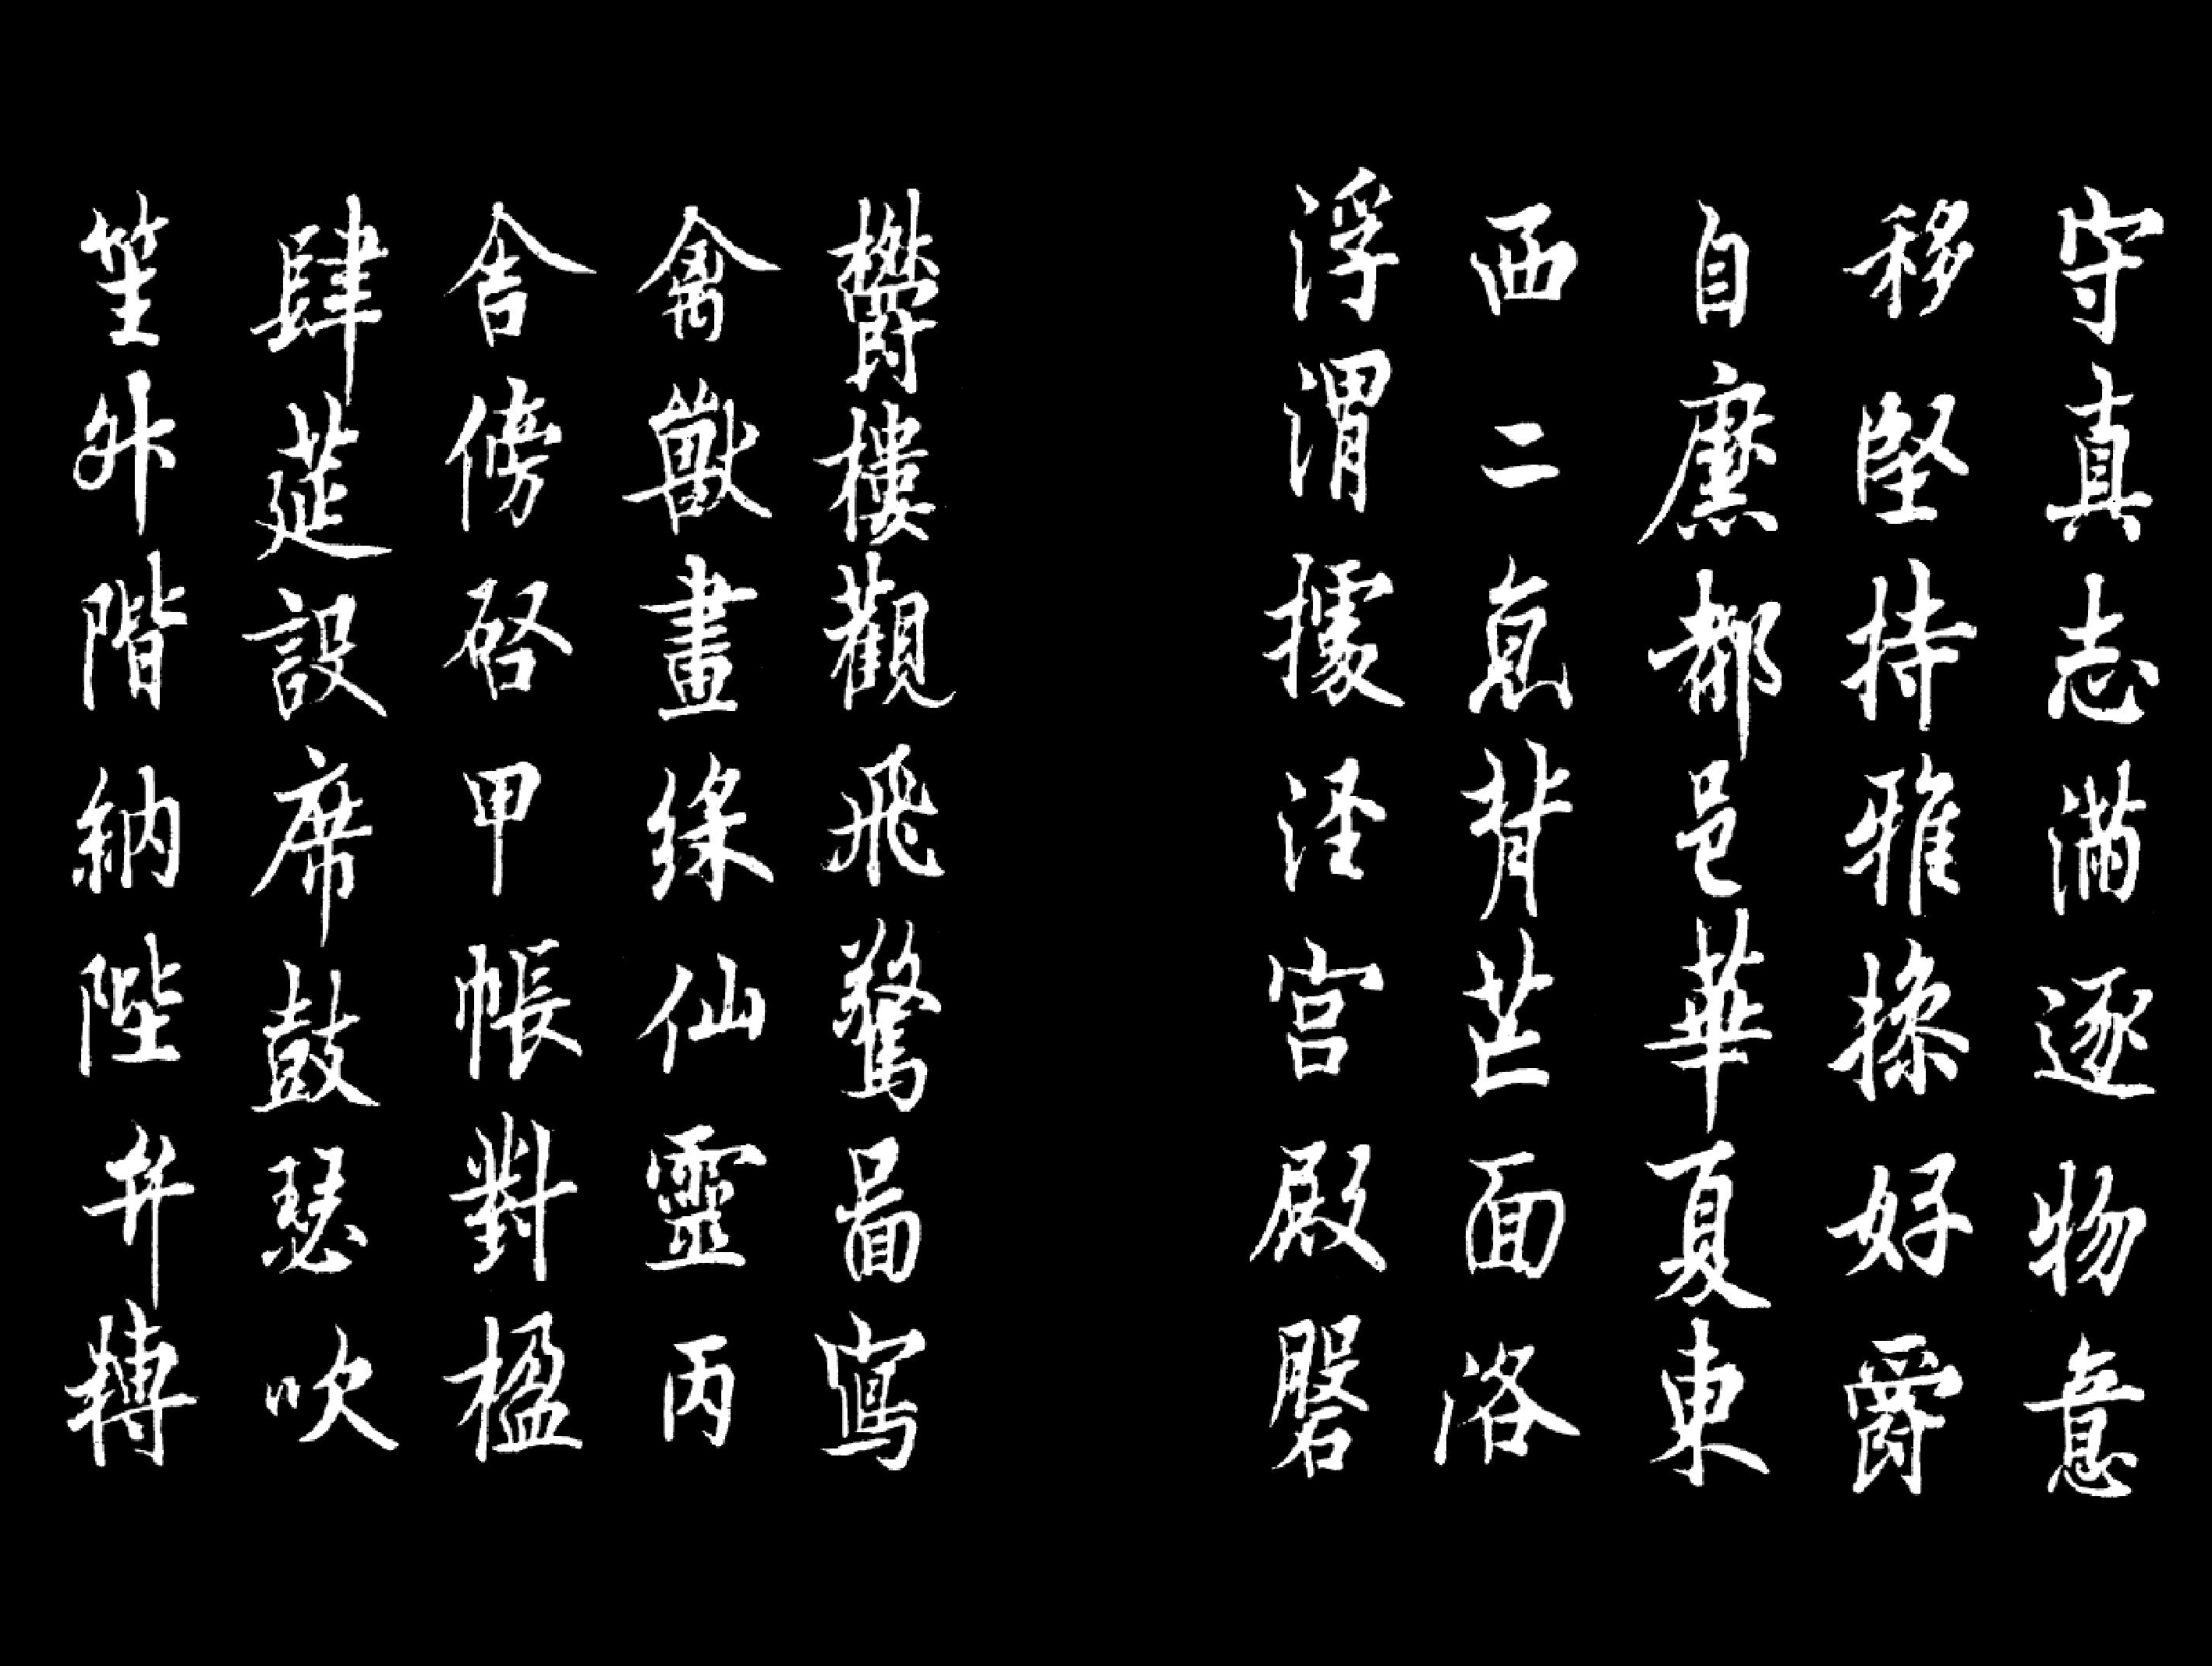 守真志滿逐物意
移堅持雅操好爵
自縻都邑華夏東
西二京背芒面洛
浮渭據涇宮殿磐
欝樓觀飛驚啚寫
禽獸畫綵仙靈丙
舍傍啓甲帳對楹
肆莚設席鼓瑟吹
笙升階納陛弁轉